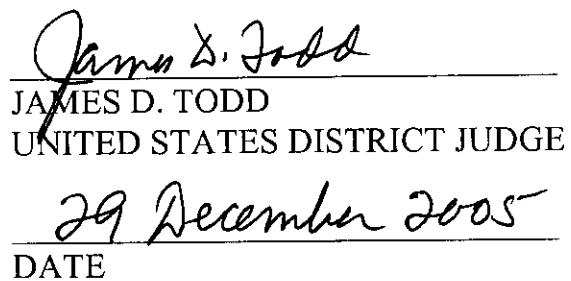 James D. Todd
JAMES D. TODD
UNITED STATES DISTRICT JUDGE
29 December 2005
DATE